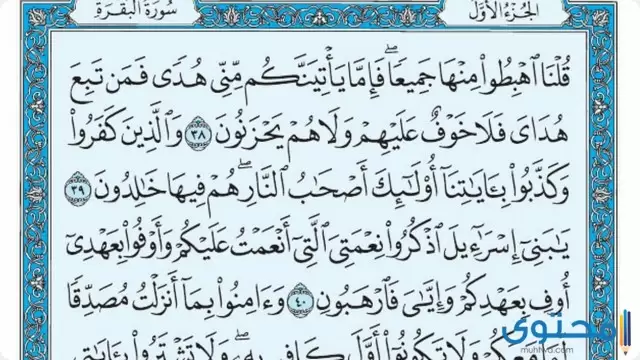 الجزء الأول
سورة البقرة
قُلْنَا ٱهْبِطُوا۟ مِنْهَا جَمِيعًا ۖ فَإِمَّا يَأْتِيَنَّكُم مِّنِّى هُدًى فَمَن تَبِعَ
هُدَاىَ فَلَا خَوْفٌ عَلَيْهِمْ وَلَا هُمْ يَحْزَنُونَ ٣٨ وَٱلَّذِينَ كَفَرُوا۟
وَكَذَّبُوا۟ بِـَٔايَـٰتِنَآ أُو۟لَـٰٓئِكَ أَصْحَـٰبُ ٱلنَّارِ ۖ هُمْ فِيهَا خَـٰلِدُونَ ٣٩
يَـٰبَنِىٓ إِسْرَٰٓءِيلَ ٱذْكُرُوا۟ نِعْمَتِىَ ٱلَّتِىٓ أَنْعَمْتُ عَلَيْكُمْ وَأَوْفُوا۟ بِعَهْدِىٓ
أُوفِ بِعَهْدِكُمْ وَإِيَّـٰىَ فَٱرْهَبُونِ ٤٠ وَءَامِنُوا۟ بِمَآ أَنزَلْتُ مُصَدِّقًا
وَلَا تَكُونُوٓا۟ أَوَّلَ كَافِرٍۭ بِهِۦ ۖ وَلَا تَشْتَرُوا۟ بِـَٔايَـٰتِى
محتوى
muhtwa.com